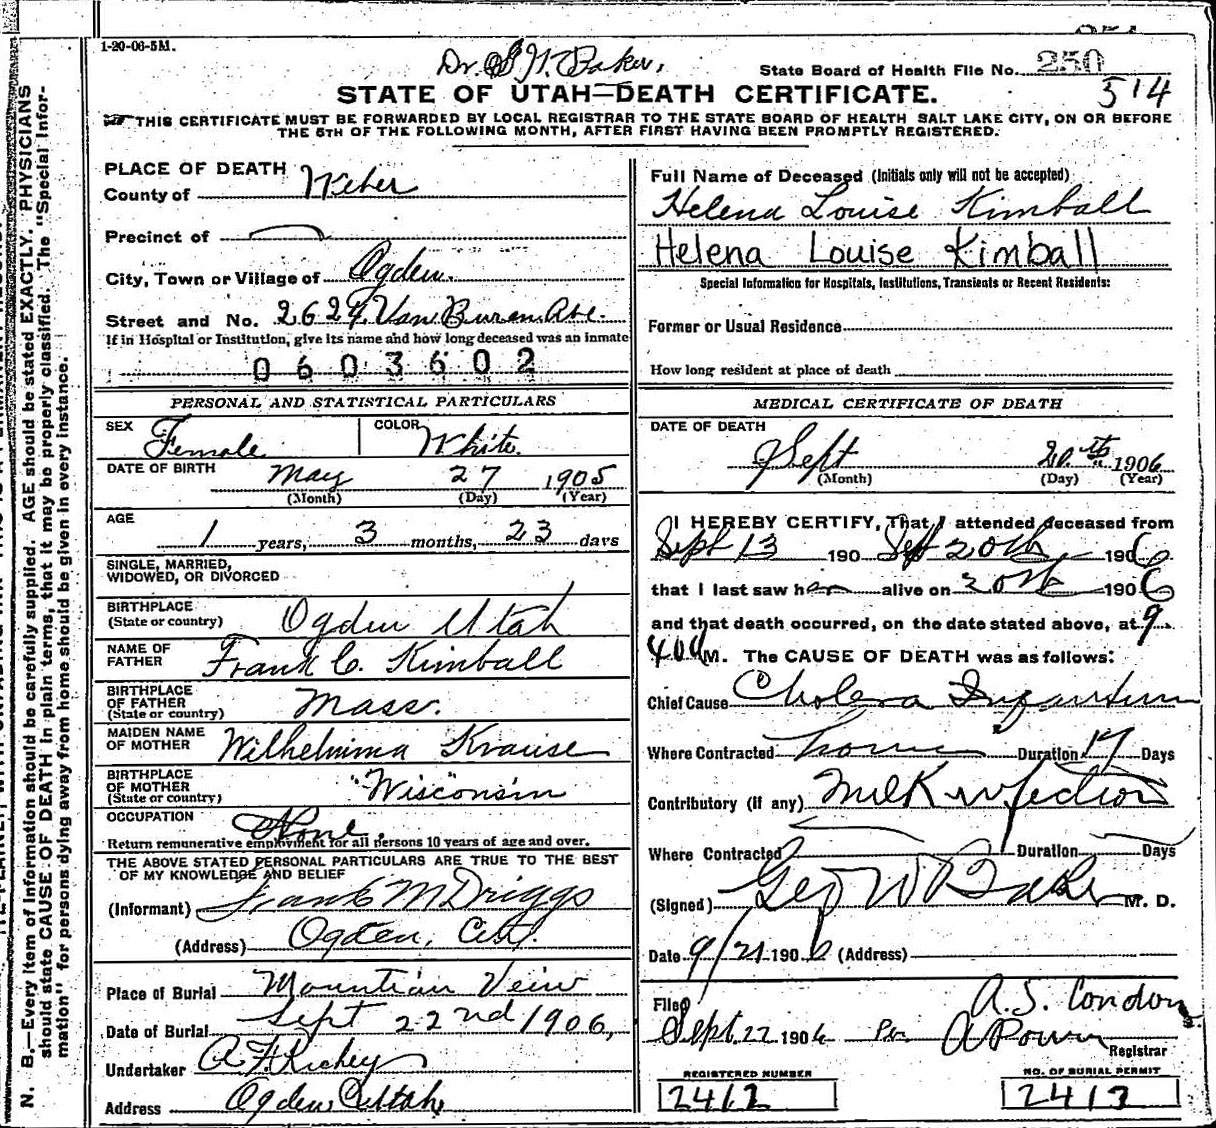 1-20-06-5M.
Dr. G. W. Baker,
State Board of Health File No. 250
514
STATE OF UTAH—DEATH CERTIFICATE.
THIS CERTIFICATE MUST BE FORWARDED BY LOCAL REGISTRAR TO THE STATE BOARD OF HEALTH SALT LAKE CITY, ON OR BEFORE
THE 5TH OF THE FOLLOWING MONTH, AFTER FIRST HAVING BEEN PROMPTLY REGISTERED.
PLACE OF DEATH
County of Weber
Precinct of
City, Town or Village of Ogden.
Street and No. 2629 Van Buren Ave.
If in Hospital or Institution, give its name and how long deceased was an inmate
0603602
PERSONAL AND STATISTICAL PARTICULARS
SEX Female COLOR White.
DATE OF BIRTH May 27 1905
(Month) (Day) (Year)
AGE
1 years, 3 months, 23 days
SINGLE, MARRIED,
WIDOWED, OR DIVORCED
BIRTHPLACE
(State or country) Ogden Utah
NAME OF
FATHER Frank C. Kimball
BIRTHPLACE
OF FATHER
(State or country) Mass.
MAIDEN NAME
OF MOTHER Wilhelmima Krause
BIRTHPLACE
OF MOTHER
(State or country) "Wisconsin
OCCUPATION None.
Return remunerative employment for all persons 10 years of age and over.
THE ABOVE STATED PERSONAL PARTICULARS ARE TRUE TO THE BEST
OF MY KNOWLEDGE AND BELIEF
(Informant) Frank M Driggs
(Address) Ogden, City.
Place of Burial Mountian Veiw
Date of Burial Sept 22nd 1906,
Undertaker A F Richey
Address Ogden Utah,
Full Name of Deceased (Initials only will not be accepted)
Helena Louise Kimball
Helena Louise Kimball
Special Information for Hospitals, Institutions, Transients or Recent Residents:
Former or Usual Residence
How long resident at place of death
MEDICAL CERTIFICATE OF DEATH
DATE OF DEATH
Sept 20th 1906
(Month) (Day) (Year)
I HEREBY CERTIFY, That I attended deceased from
Sept 13 190 Sept 20th 1906
that I last saw her alive on 20th 1906
and that death occurred, on the date stated above, at 9
M. The CAUSE OF DEATH was as follows:
Chief Cause Cholera Infantum
Where Contracted home Duration 17 Days
Contributory (if any) Milk infection
Where Contracted Duration Days
(Signed) Geo W Baker M. D.
Date 9/21 1906 (Address)
Filed A. S. Condon
Sept. 22 1906 Per
Registrar
REGISTERED NUMBER
2412
NO. OF BURIAL PERMIT
2413
N. B.—Every item of information should be carefully supplied. AGE should be stated EXACTLY. PHYSICIANS
should state CAUSE OF DEATH in plain terms, that it may be properly classified. The "Special Infor-
mation" for persons dying away from home should be given in every instance.